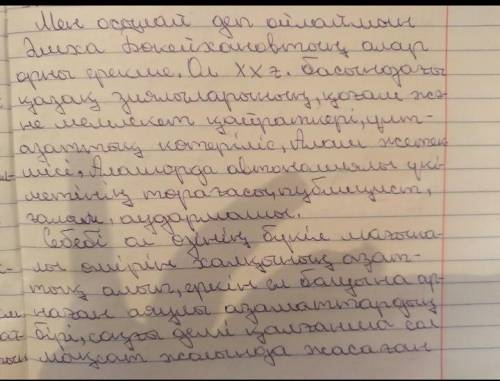 Мен осылай деп ойлаймын
Әлиха Бөкейхановтың алар
орны ерекше. Ол ХХ ғ. басындағы
қазақ зиялыларының, қоғам жә-
не мемлекет қайраткері, ұлт-
азаттық көтеріліс, Алаш жетек-
шісі, Алашорда автономиялы үкі-
метінің төрағасы, публицист,
ғалым, аудармашы.
Себебі ол өзінің бүкіл мағына-
лы өмірін халқының азат-
тық алып, еркін ел болуына ар-
наған аяулы азаматтардың
бірі, соңғы демі қалғанша сол
мақсат жолында жасаған